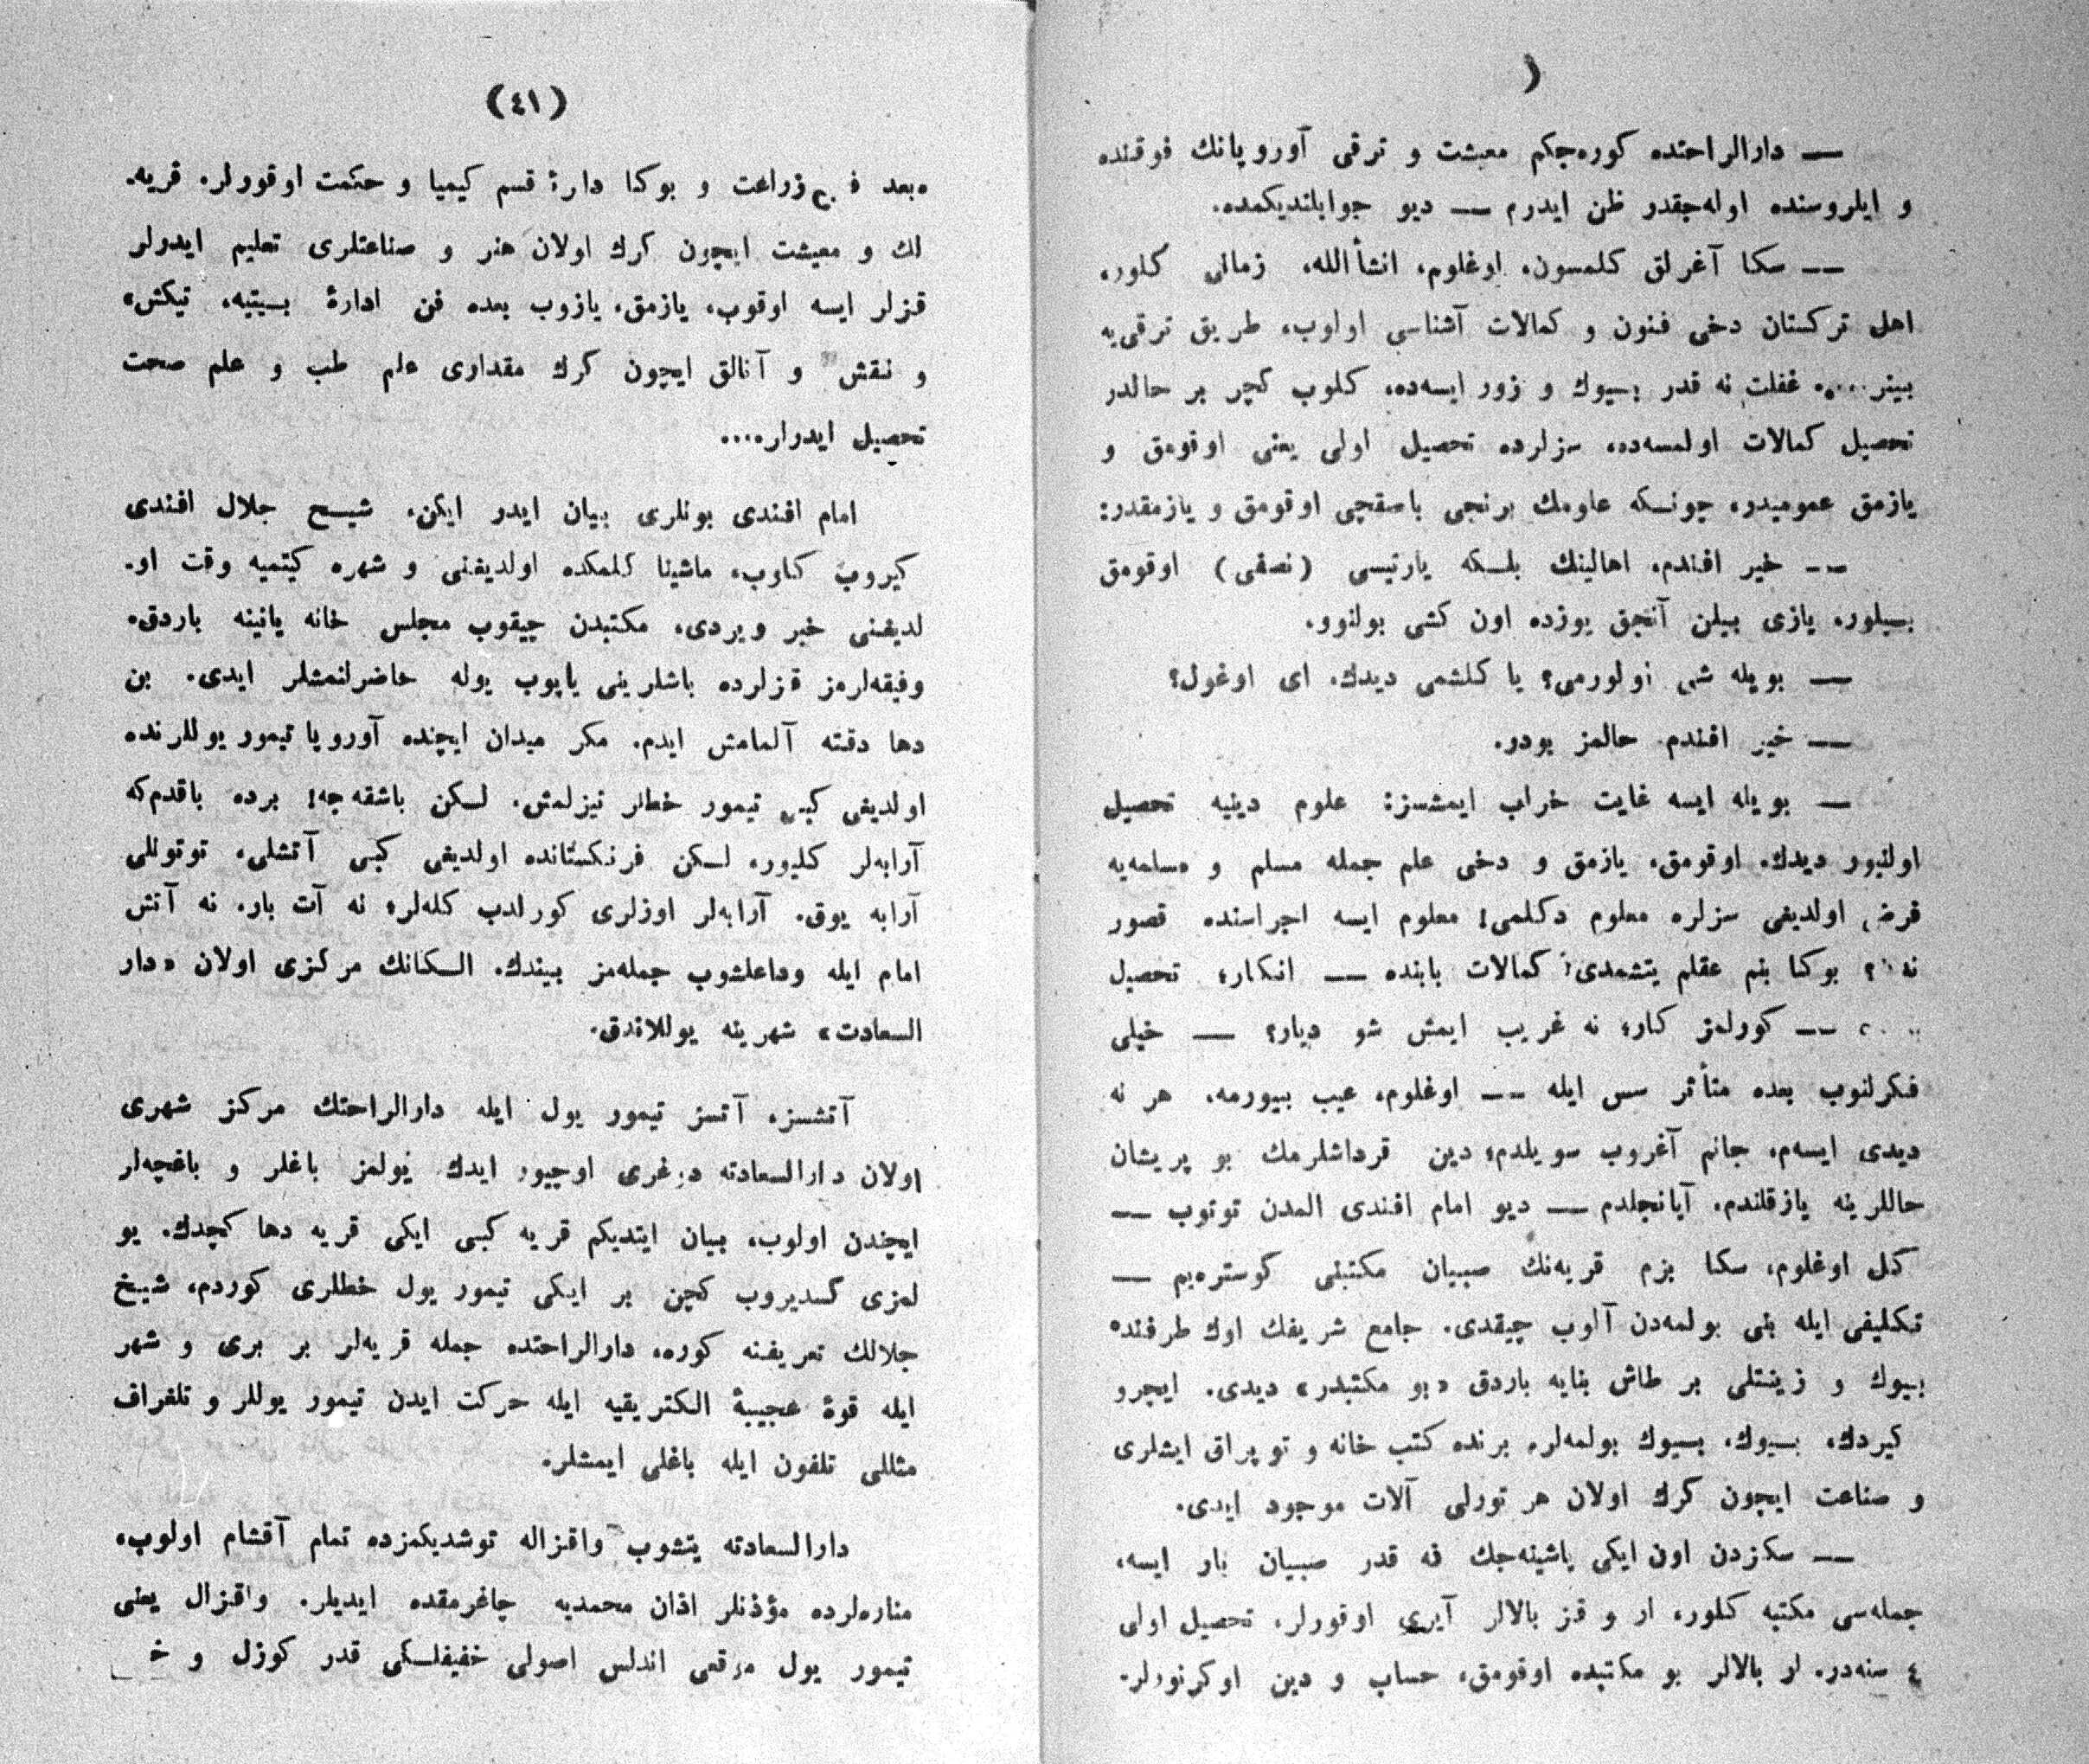 — دارالراحتده كوره‌جكم معيشت و ترقى آوروپانك فوقنده
و ايلروسنده اوله‌جقدر ظن ايدرم — ديو جوابلنديكمده.
— سكا آغرلق كلمسون، اوغلوم، انشأالله، زمانى كلور،
اهل تركستان دخى فنون و كمالات آشناسى اولوب، طريق ترقى‌يه
بينر.... غفلت نه قدر بيوك و زور ايسه‌ده، كلوب كچر بر حالدر
تحصيل كمالات اولمسه‌ده، سزلرده تحصيل اولى يعنى اوقومق و
يازمق عموميدر، چونكه علومك برنجى باصقچى اوقومق و يازمقدر:
— خير افندم، اهالينك بلكه يارتيسى (نصفى) اوقومق
بيلور، يازى بيلن آنجق يوزده اون كشى بولنور.
— بويله شى اولورمى؟ يا كلشمى ديدك، اى اوغول؟
— خير افندم حالمز بودر.
— بويله ايسه غايت خراب ايمشسز: علوم دينيه تحصيل
اولنيور ديدك، اوقومق، يازمق و دخى علم جمله مسلم و مسلمه‌يه
فرض اولديغى سزلره معلوم دكلمى! معلوم ايسه اجراسنده قصور
نه ؟ بوكا بنم عقلم يتشمدى! كمالات بابنده — انكار، تحصيل
— كورلمز كار، نه غريب ايمش شو ديار؟ — خيلى
فكرلنوب بعده متأثر سس ايله — اوغلوم، عيب بيورمه، هر نه
ديدى ايسه‌م، جانم آغروب سويلدم، دين قرداشلرمك بو پريشان
حاللرينه يازقلندم، آيانجلدم — ديو امام افندى المدن توتوب —
كل اوغلوم، سكا بزم قريه‌نك صبيان مكتبنى كوستره‌يم —
تكليفى ايله بنى بولمه‌دن آلوب چيقدى. جامع شريفك اوك طرفنده
بيوك و زينتلى بر طاش بنايه باردق «بو مكتبدر» ديدى. ايچرو
كيردك، بيوك، بيوك بولمه‌لر، برنده كتب خانه و توپراق ايشلرى
و صناعت ايچون كرك اولان هر تورلى آلات موجود ايدى.
— سكزدن اون ايكى ياشينه‌جك نه قدر صبيان بار ايسه،
جمله‌سى مكتبه كلور، ار و قز بالالر آيرى اوقورلر، تحصيل اولى
٤ سنه‌در. ار بالالر بو مكتبده اوقومق، حساب و دين اوكرنورلر.
(٤١)
بعد زراعت و بوكا دارٔ قسم كيميا و حكمت اوقورلر. قريه.
لك و معيشت ايچون كرك اولان هنر و صناعتلرى تعليم ايدرلر
قزلر ايسه اوقوب، يازمق، يازوب بعده فن ادارهٔ بيتيه، تيكش،
و نقش و آنالق ايچون كرك مقدارى علم طب و علم صحت
تحصيل ايدرلر....
امام افندى بونلرى بيان ايدر ايكن، شيخ جلال افندى
كيروب كلوب، ماشينا كلمكده اولديغنى و شهره كيتميه وقت او.
لديغنى خبر ويردى، مكتبدن چيقوب مجلس خانه يانينه باردق.
وفيقه‌لرمز قزلرده باشلرينى ياپوب يوله حاضرلنمشلر ايدى. بن
دها دقته آلمامش ايدم. مكر ميدان ايچنده آوروپا تيمور يوللرنده
اولديغى كبى تيمور خطلر تيزلمش. لكن باشقه‌جه! برده باقدم‌كه
آرابه‌لر كليور، لكن فرنكستانده اولديغى كبى آتشلى، توتونلى
آرابه يوق. آرابه‌لر اوزلرى كورلدب كله‌لر، نه آت بار، نه آتش
امام ايله وداعلشوب جمله‌مز بيندك. الكانك مركزى اولان «دار
السعادت» شهرينه يوللاندق.
آتشسز، آتسز تيمور يول ايله دارالراحتك مركز شهرى
اولان دارالسعادته دوغرى اوچيور ايدك يولمز باغلر و باغچه‌لر
ايچندن اولوب، بيان ايتديكم قريه كبى ايكى قريه دها كچدك. يو
لمزى كسديروب كچن بر ايكى تيمور يول خطلرى كوردم، شيخ
جلالك تعريفنه كوره، دارالراحتده جمله قريه‌لر بر برى و شهر
ايله قوهٔ عجيبهٔ الكتريقيه ايله حركت ايدن تيمور يوللر و تلغراف
مثللى تلفون ايله باغلى ايمشلر.
دارالسعادته يتشوب واقزاله توشديكمزده تمام آقشام اولوب،
مناره‌لرده مؤذنلر اذان محمديه چاغرمقده ايديلر. واقزال يعنى
تيمور يول موقعى اندلس اصولى خفيفلكى قدر كوزل و خ